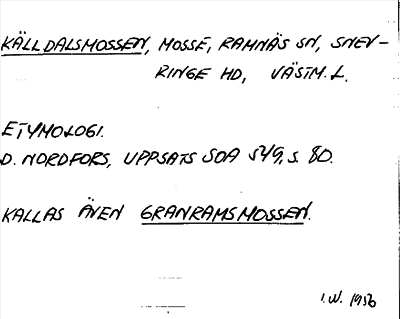 KÄLLDALSMOSSEN, MOSSE, RAMNÄS SN, SNEV-
RINGE HD, VÄSTM. L.
ETYMOLOGI.
D. NORDFORS, UPPSATS SOA 549, S. 80.
KALLAS ÄVEN GRANRAMSMOSSEN.
I.W. 1956